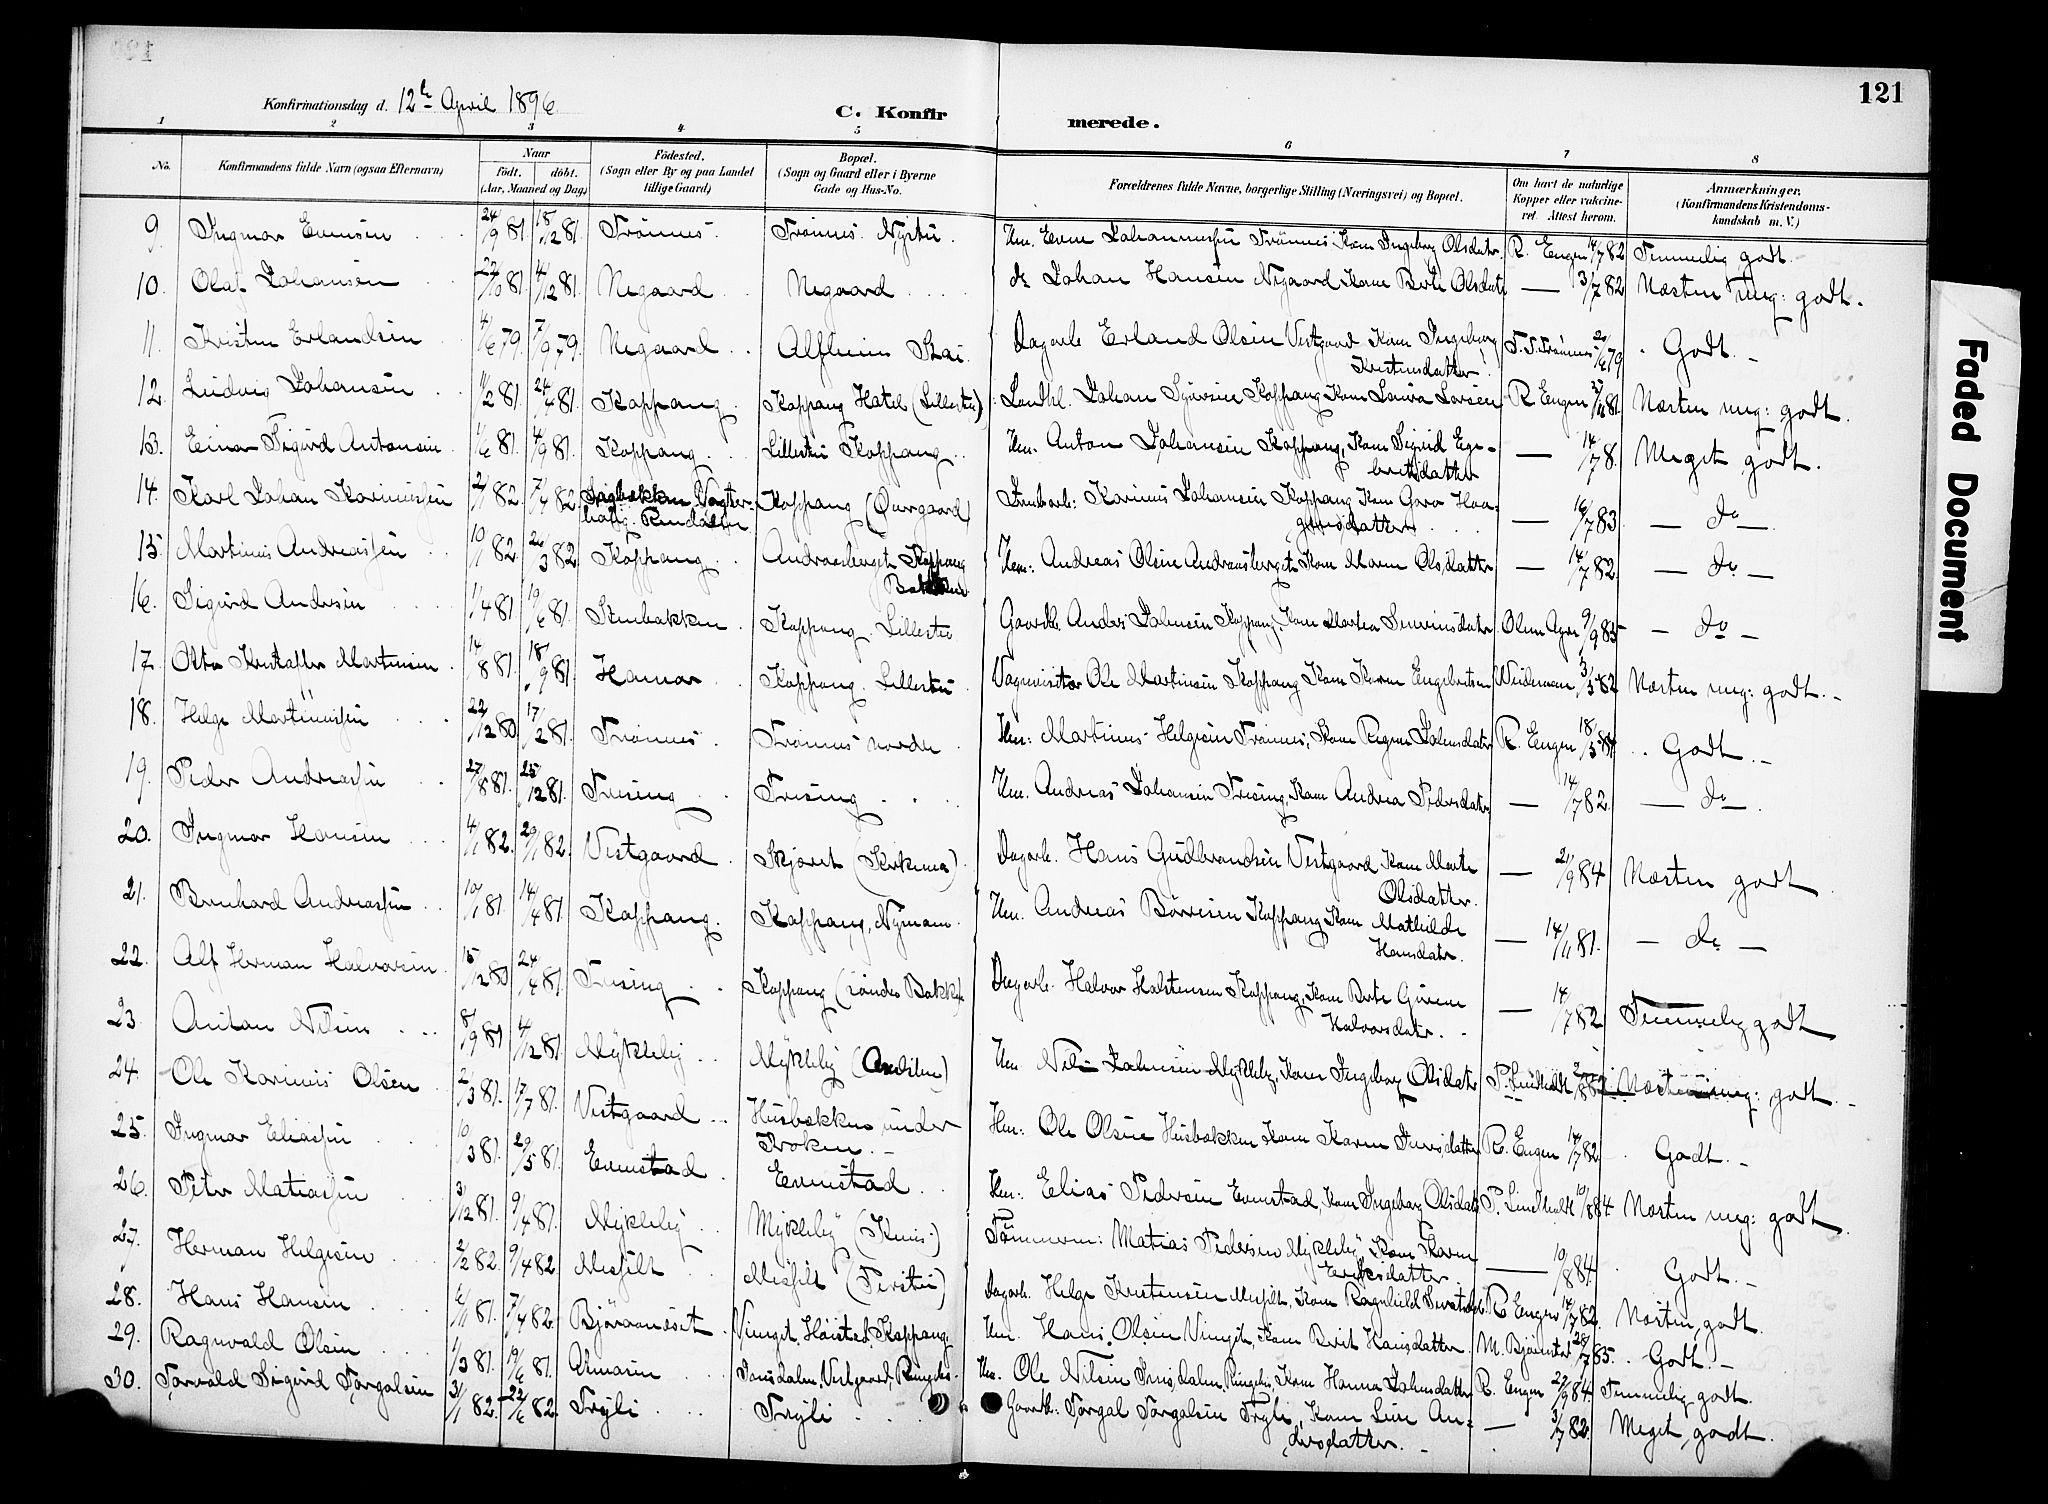 121
Konfirmationsdag d. 12te April 1896
C. Konfirmerede.
1 2 3 4 5 6 7 8
No. Konfirmandens fulde Navn (ogsaa Efternavn) Naar født. døbt. (Aar, Maaned og Dag) Fødested. (Sogn eller By og paa Landet tillige Gaard) Bopæl. (Sogn og Gaard eller i Byerne Gade og Hus-No. Forældrenes fulde Navne, borgerlige Stilling (Næringsvei) og Bopæl. Om havt de naturlige Kopper eller vakcineret. Attest herom. Anmærkninger. (Konfirmandens Kristendomskundskab m. V.)
9. Ingmar Evensen 24/9 81 18/12 81 Trønnes Trønnes Hm. Even Johannessen Trønnes Kone Ingeborg Olsdatr. R. Engen 14/7 82 Temmelig godt.
10. Olaf Johansen 22/10 81 4/12 81 Negaard Negaard do Johan Hansen Negaard Kone Berte Olsdatr — 3/7 82 Næsten meg: godt.
11. Kristen Erlandsen 4/6 79 7/9 79 Negaard Alfheim Stai Dagarb. Erland Olsen Vestgaard Kone Ingeborg Kristensdatter T. T. Trønnes 79 Godt.
12. Ludvig Johansen 11/2 81 24/4 81 Koppang Koppang Hotel (Lillestu) Landh. Johan Koppang Kone Laura Larsen R Engen 81 Næsten meg: godt.
13. Einar Sigurd Antonsen 1/6 81 4/9 81 Koppang Lillestu Koppang Hm. Anton Johansen Koppang, Kone Sigrid Egebretsdatter — 14/7 8. Meget godt.
14. Karl Johan Karinussen 2/1 82 7/4 82 Rendalen Koppang (Øvrgaard) Karinus Johansen Koppang Kone Goro Haagensdatter — 16/7 83 — do —
15. Martinus Andreassen 10/1 82 26/3 82 Koppang Andreasberget Koppang Bakken Hm: Andreas Olsen Andreasberget Kone Maren Olsdatter — 14/7 82. — do —
16. Sigurd Andersen 1/4 81 19/6 81 Stenbakken Koppang Lillestu Gaardb. Anders Johnsen Koppang, Kone Martea Severinsdatr 9/9 85 — do —
17. Otto Kristoffer Martinsen 14/8 81 18/9 81 Hamar Koppang Lillestu Vognvisitør Ole Martinsen Koppang Kone Karen Engebretsen Weideman, 3/5 82 Næsten meg: godt.
18. Helge Martinussen 22/12 80 17/2 81 Trønnes Trønnes nordre Hm: Martinus Helgesen Trønnes, Kone Regine Johnsdatr R. Engen 18/5 84 Godt.
19. Peder Andreassen 27/8 81. 25/12 81. Treseng Treseng Hm. Andreas Johansen Treseng, Kone Andrea Pedersdatr — 14/7 82. — do —
20. Ingmar Hansen 4/1 82. 29/1 82. Vestgaard Skjæret Dagarb. Hans Gudbrandsen Vestgaard Kone Marte Olsdatter. — 21/9 84 Næsten godt
21. Bernhard Andreassen 10/1 81 14/4 81 Koppang. Koppang, Nymoen. Hm. Andreas Børresen Koppang Kone Mathilde Hansdatr. — 14/11 81. — do —
22. Alf Herman Halvorsen 15/12 80 24/4 81 Treseng Koppang (søndre Bakke) Dagarb. Halvor Halstensen Koppang, Kone Berte Gurene Halvorsdatr. — 14/7 82 Temmelig godt
23. Anton Nilsen 8/9 81 4/12 81 Mykleby Mykleby Hm Nils Johnsen Mykleby, Kone Ingeborg Olsdatr P. Lindholdt 2/8 82 Næsten meg: godt.
24. Ole Karinus Olsen 2/3 81. 17/7 81. Vestgaard Husbakken under Kroken. Hm: Ole Olsen Husbakken Kone Karen Iversdatter R. Engen 14/7 82 Godt.
25. Ingmar Eliassen 10/3 81. 29/5 81. Evenstad Evenstad Hm: Elias Pedersen Evenstad, Kone Ingeborg Olsdatr P. Lindholdt 10/8 84. Næsten meg: godt
26. Peter Matiassen 3/12 81. 9/4 81. Mykleby Mykleby Tømmerm: Matias Pedersen Mykleby, Kone Karen Eriksdatter — 10/8 84. Godt.
27. Herman Helgesen 2/2 82. 9/4 82. Messelt Messelt Dagarb. Helge Kristensen Messelt, Kone Ragnhild R. Engen 14/7 82. Næsten godt.
28. Hans Hansen 6/11 81. 7/4 82. Bjøraanæset Vinget, Høistad, Koppang. Hm. Hans Olsen Vinget, Kone Berit Hansdatter. M. Bjørnstad 28/7 85. Godt.
29. Ragnvald Olsen 1/3 81. 19/6 81. Atnaosen Dalen, Vestgaard, Ringebu. Hm. Ole Nilsen Dalen, Ringebu, Kone Hanna Johnsdatter R. Engen 29/9 84. Temmelig godt.
30. Torvald Sigurd Torgalsen 31/1 82. 22/6 82. Tryli Tryli Gaardb: Torgal Torgalsen Tryli, Kone Line Andersdatter. — 3/7 82. Meget godt.
Faded Document